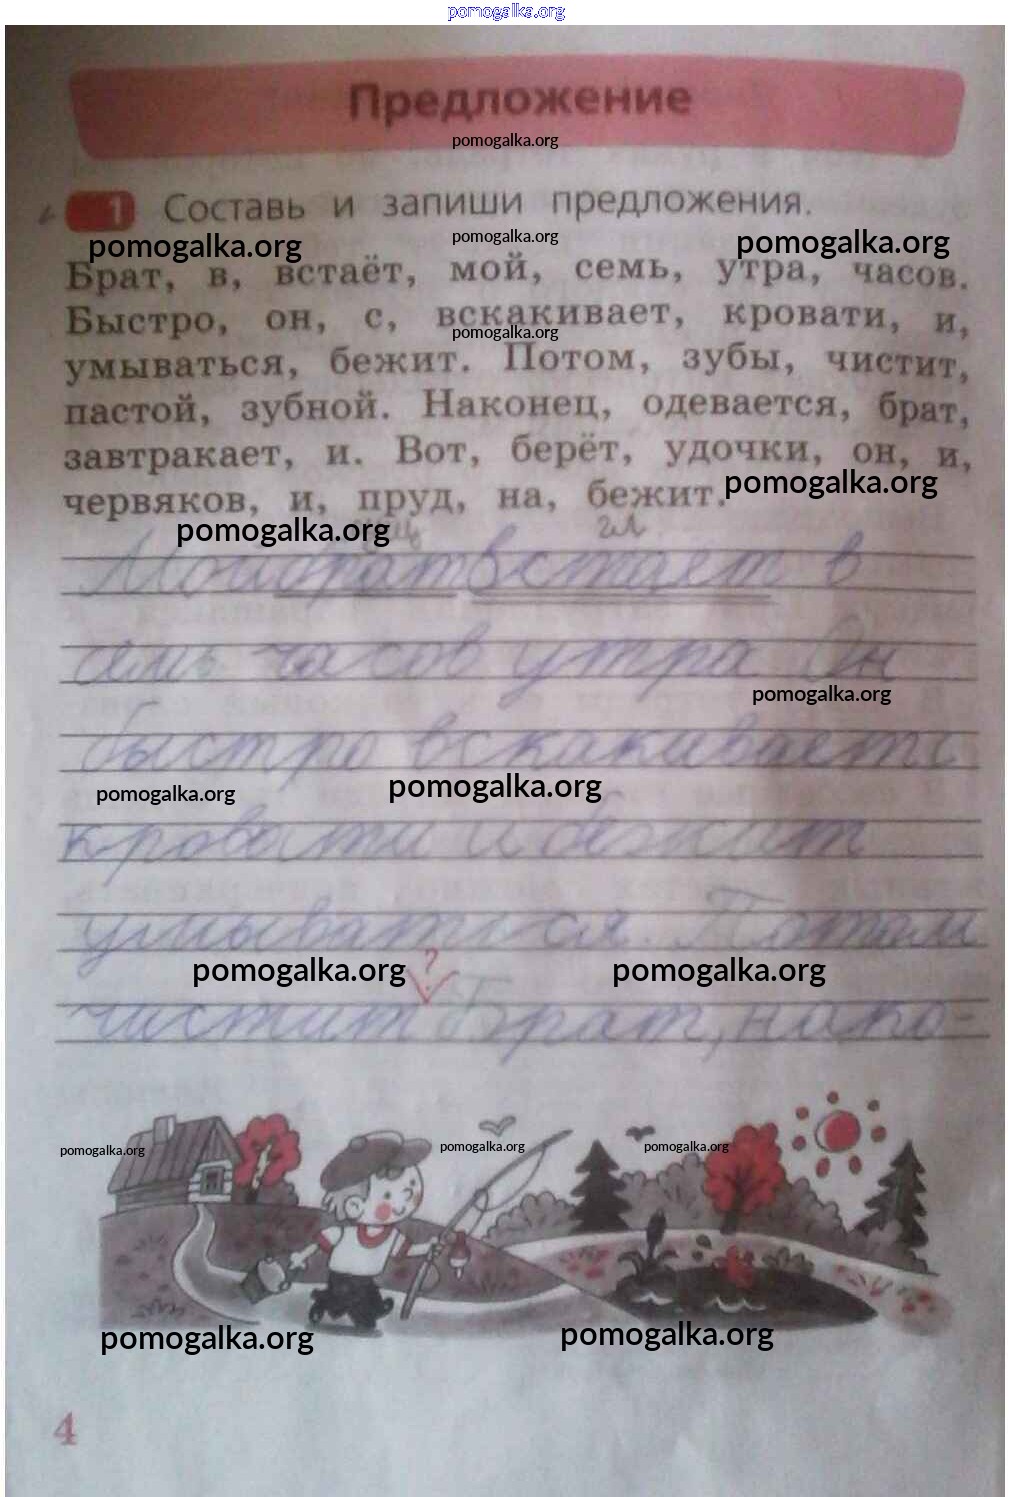 pomogalka.org
Предложение
pomogalka.org
1 Составь и запиши предложения.
pomogalka.org pomogalka.org pomogalka.org
Брат, в, встаёт, мой, семь, утра, часов.
Быстро, он, с, вскакивает, кровати, и,
pomogalka.org
умываться, бежит. Потом, зубы, чистит,
пастой, зубной. Наконец, одевается, брат,
завтракает, и. Вот, берёт, удочки, он, и,
pomogalka.org
червяков, и, пруд, на, бежит.
pomogalka.org
сущ гл.
Мой брат встает в
семь часов утра Он
pomogalka.org
быстро вскакивает с
pomogalka.org pomogalka.org
кровати и бежит
умываться. Потом
pomogalka.org pomogalka.org
?
чистит Брат, нако-
pomogalka.org pomogalka.org pomogalka.org
pomogalka.org pomogalka.org
4